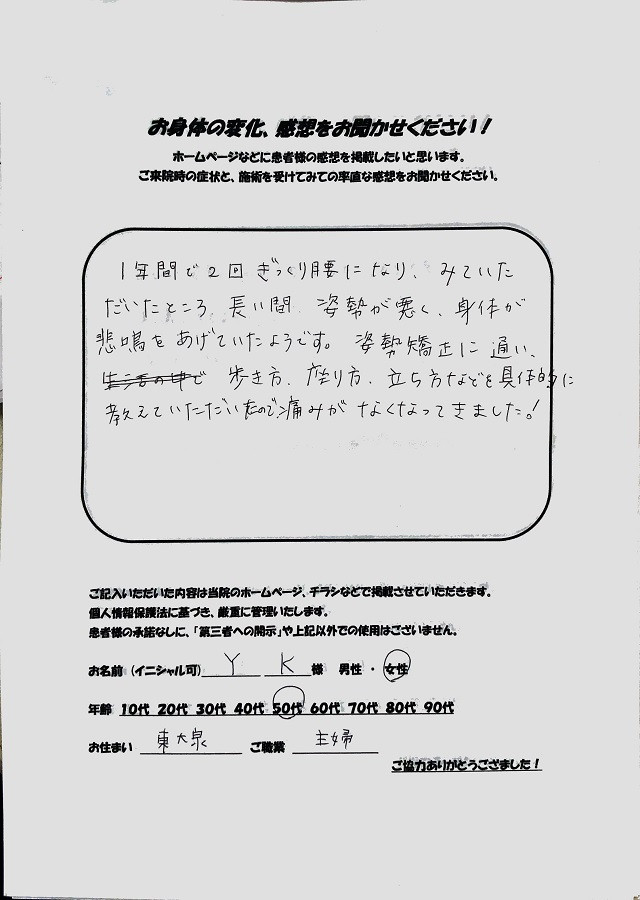 お身体の変化、感想をお聞かせください！
ホームページなどに患者様の感想を掲載したいと思います。
ご来院時の症状と、施術を受けてみての率直な感想をお聞かせください。
1年間で2回ぎっくり腰になり、みていた
だいたところ、長い間、姿勢が悪く、身体が
悲鳴をあげていたようです。姿勢矯正に通い、
歩き方、座り方、立ち方などを具体的に
教えていただいたので、痛みがなくなってきました。!
ご記入いただいた内容は当院のホームページ、チラシなどで掲載させていただきます。
個人情報保護法に基づき、厳重に管理いたします。
患者様の承諾なしに、「第三者への開示」や上記以外での使用はございません。
お名前（イニシャル可） Y K 様 男性 ・ 女性
年齢 10代 20代 30代 40代 50代 60代 70代 80代 90代
お住まい 東大泉 ご職業 主婦
ご協力ありがとうござました！